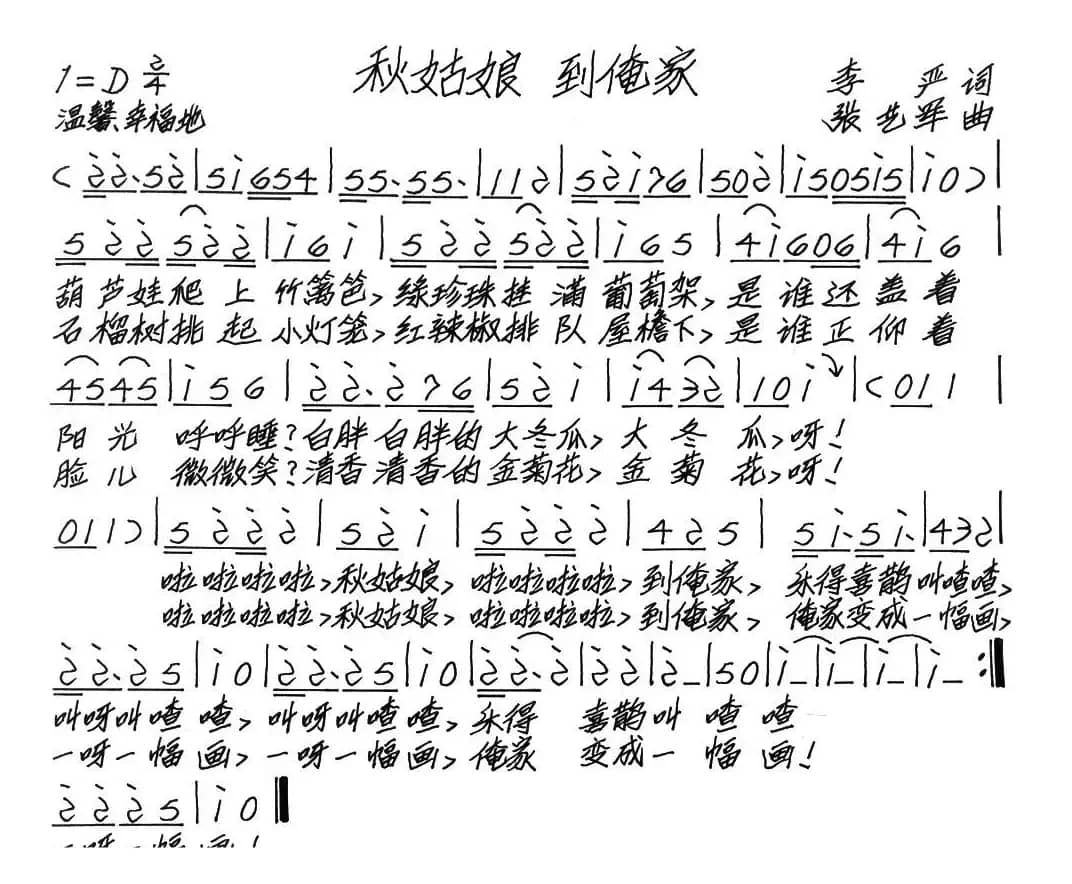 秋姑娘 到俺家
1=D 2/4
李 严 词
温馨、幸福地
张艺军 曲
< 2̇2̇·52̇ | 5i̇654 | 55·55· | 112 | 52̇i̇76 | 502̇ | i̇505i̇5 | i̇0 > |
52̇2̇52̇2̇ | i̇6i̇ | 52̇2̇52̇2̇ | i̇65 | 4i̇606 | 4i̇6 |
葫芦娃爬上竹篱笆,绿珍珠挂满葡萄架,是谁还盖着
石榴树挑起小灯笼,红辣椒排队屋檐下,是谁正仰着
4545 | i̇56 | 2̇2̇·2̇76 | 52̇i̇ | i̇432̇ | 10i̇ | < 011 |
阳光 呼呼睡?白胖白胖的大冬瓜,大冬瓜,呀!
脸儿 微微笑?清香清香的金菊花,金菊花,呀!
011 > | 52̇2̇2̇ | 52̇i̇ | 52̇2̇2̇ | 425 | 5i̇·5i̇· | 432 |
啦啦啦啦,秋姑娘,啦啦啦啦,到俺家,乐得喜鹊叫喳喳,
啦啦啦啦,秋姑娘,啦啦啦啦,到俺家,俺家变成一幅画,
2̇2̇·2̇5 | i̇0 | 2̇2̇·2̇5 | i̇0 | 2̇2̇·2̇ | 2̇2̇ | 2̇– | 50 | i̇– | i̇– | i̇– | i̇– :‖
叫呀叫喳喳,叫呀叫喳喳,乐得 喜鹊叫喳喳
一呀一幅画,一呀一幅画,俺家 变成一幅画!
2̇2̇2̇5 | i̇0 ‖
一呀一幅画!